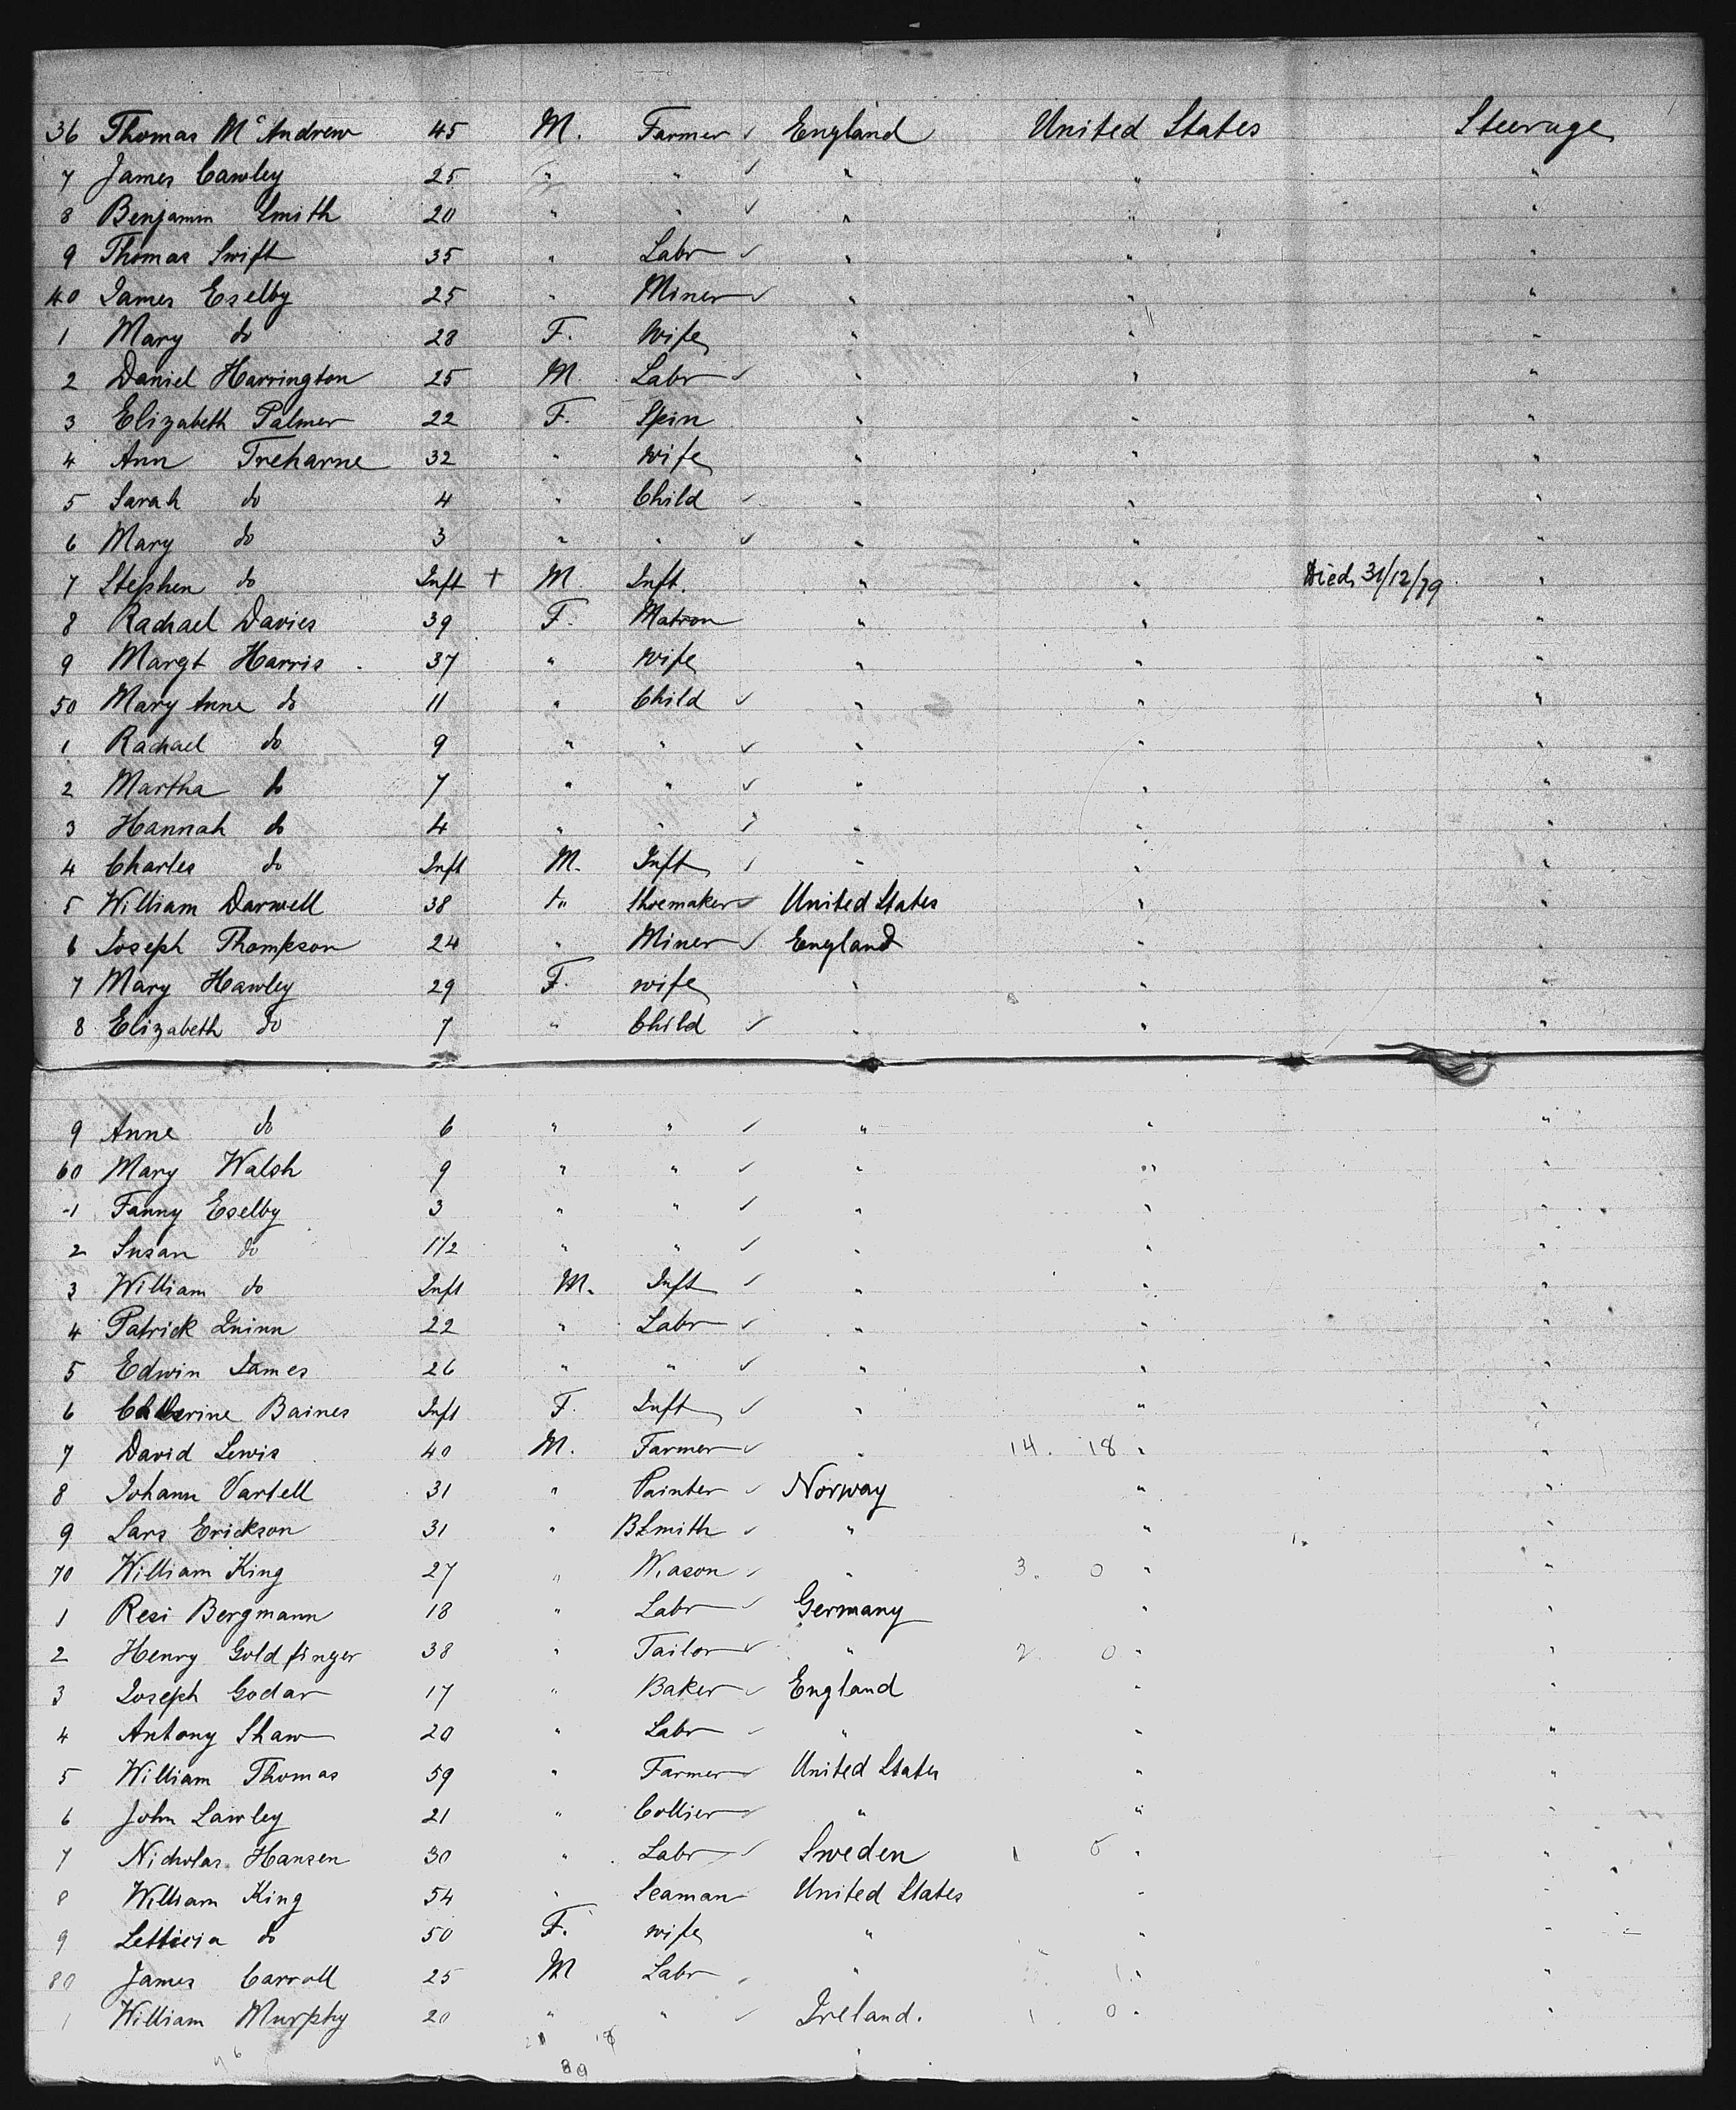 36 Thomas McAndrew 45 M. Farmer ✓ England United States Steerage
7 James Cawley 25 " " ✓ " " "
8 Benjamin Smith 20 " " ✓ " " "
9 Thomas Swift 35 " Labr ✓ " " "
40 James Eselby 25 " Miner ✓ " " "
1 Mary do 28 F. Wife " " "
2 Daniel Harrington 25 M. Labr ✓ " " "
3 Elizabeth Palmer 22 F. Spin " " "
4 Ann Treharne 32 " Wife " " "
5 Sarah do 4 " Child ✓ " " "
6 Mary do 3 " " ✓ " " "
7 Stephen do Inft + M Inft. " " Died 31/12/79 "
8 Rachael Davies 39 F. Matron " " "
9 Margt Harris 37 " Wife " " "
50 Mary Anne do 11 " Child ✓ " " "
1 Rachael do 9 " " ✓ " " "
2 Martha do 7 " " ✓ " " "
3 Hannah do 4 " " ✓ " " "
4 Charles do Inft M. Inft ✓ " " "
5 William Darwell 38 " Shoemaker ✓ United States " "
6 Joseph Thompson 24 " Miner ✓ England " "
7 Mary Hawley 29 F. wife " " "
8 Elizabeth do 7 " Child ✓ " " "
9 Anne do 6 " " ✓ " " "
60 Mary Walsh 9 " " ✓ " " "
1 Fanny Eselby 3 " " ✓ " " "
2 Susan do 1 1/2 " " ✓ " " "
3 William do Inft M. Inft ✓ " " "
4 Patrick Quinn 22 " Labr ✓ " " "
5 Edwin James 26 " " ✓ " " "
6 Catherine Baines Inft F. Inft ✓ " " "
7 David Lewis 40 M. Farmer ✓ " 14. 18 " "
8 Johann Vartell 31 " Painter ✓ Norway " "
9 Lars Erickson 31 " BSmith ✓ " " "
70 William King 27 " Mason ✓ " 3. 0 " "
1 Resi Bergmann 18 " Labr ✓ Germany " "
2 Henry Goldfinger 38 " Tailor ✓ " 2 0 " "
3 Joseph Godar 17 " Baker ✓ England " "
4 Antony Shaw 20 " Labr ✓ " " "
5 William Thomas 59 " Farmer ✓ United States " "
6 John Lawley 21 " Collier ✓ " " "
7 Nicholas Hansen 30 " Labr ✓ Sweden 1 0 " "
8 William King 54 " Seaman United States " "
9 Letticia do 50 F. wife " " "
80 James Carroll 25 M Labr ✓ " " "
1 William Murphy 20 " " ✓ Ireland. 1. 0 " "
89